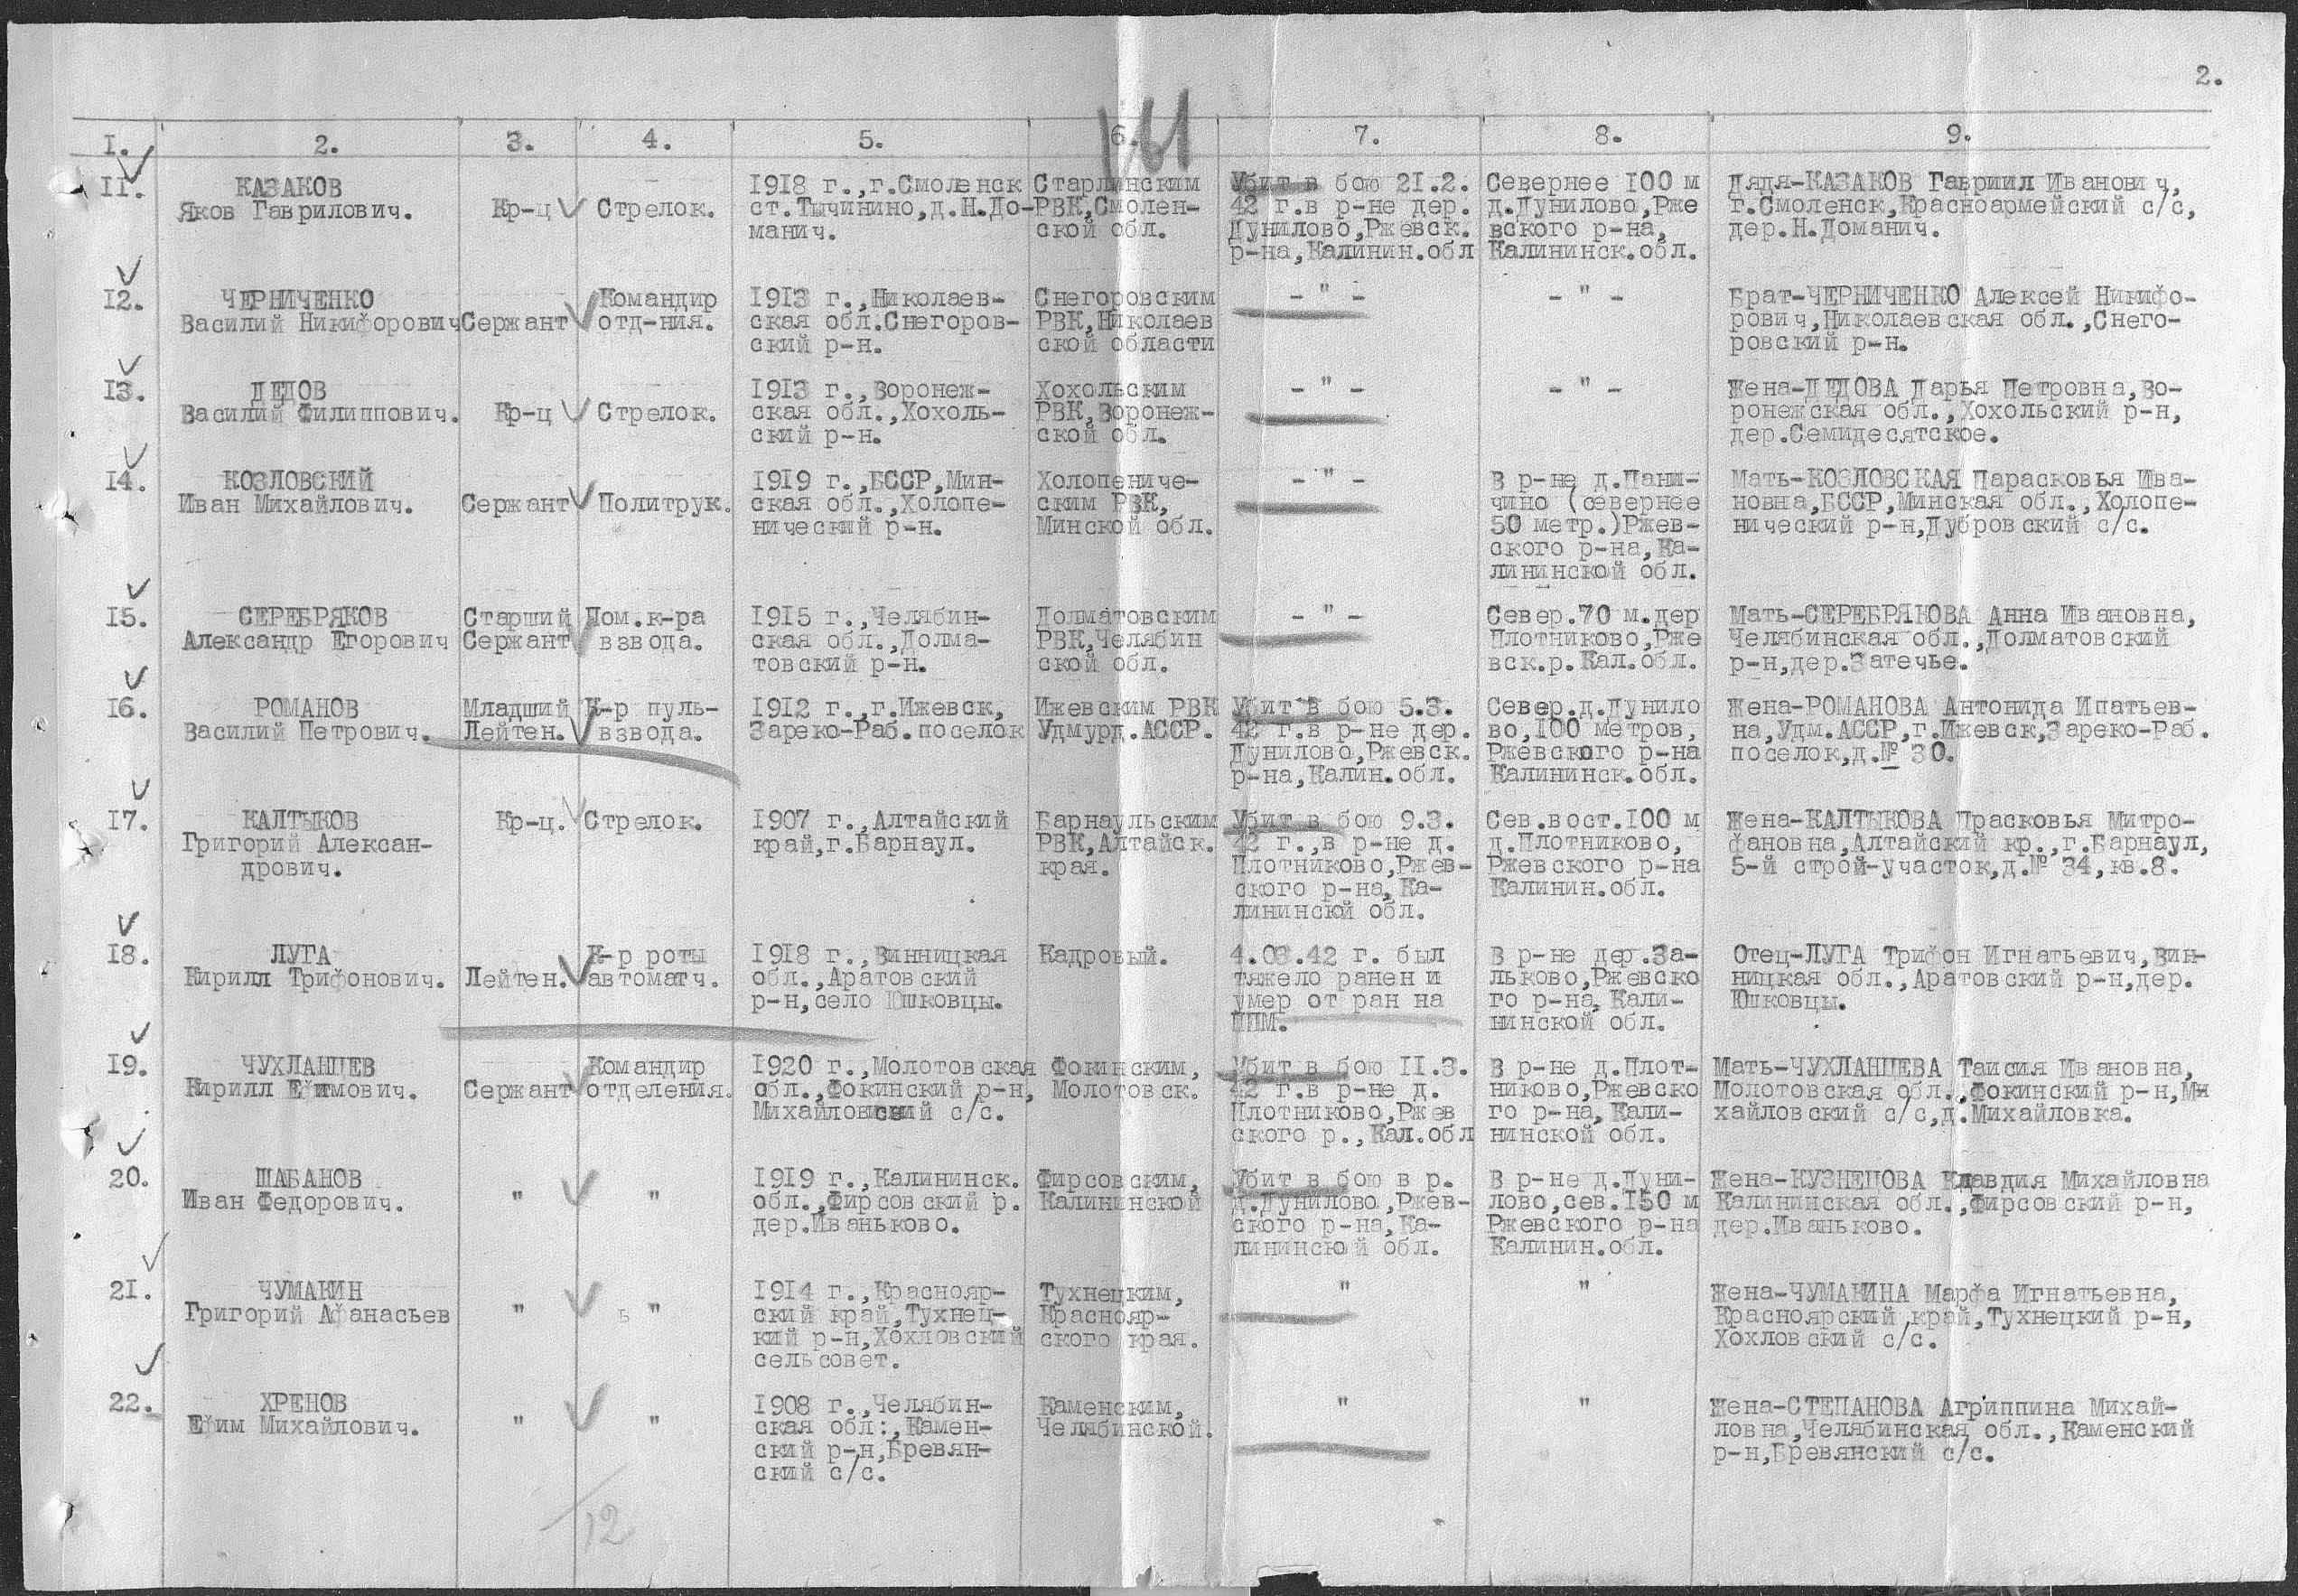 2.
161
I. 2. 3. 4. 5. 6. 7. 8. 9.
11. КАЗАКОВ
Яков Гаврилович. Кр-ц Стрелок.
1918 г.,г.Смоленск
ст.Тычинино,д.Н.До-
манич.
Старлинским
РВК,Смолен-
ской обл.
Убит в бою 21.2.
42 г.в р-не дер.
Дунилово,Ржевск.
р-на,Калинин.обл
Севернее 100 м
д.Дунилово,Рже
вского р-на,
Калининск.обл.
Дядя-КАЗАКОВ Гавриил Иванович,
г.Смоленск,Красноармейский с/с,
дер.Н.Доманич.
12. ЧЕРНИЧЕНКО
Василий Никифорович Сержант
Командир
отд-ния.
1913 г.,Николаев-
ская обл.Снегоров-
ский р-н.
Снегоровским
РВК,Николаев
ской области
- " -
- " -
Брат-ЧЕРНИЧЕНКО Алексей Никифо-
рович,Николаевская обл.,Снего-
ровский р-н.
13. ДЕДОВ
Василий Филиппович. Кр-ц Стрелок.
1913 г.,Воронеж-
ская обл.,Хохоль-
ский р-н.
Хохольским
РВК,Воронеж-
ской обл.
- " -
- " -
Жена-ДЕДОВА Дарья Петровна,Во-
ронежская обл.,Хохольский р-н,
дер.Семидесятское.
14. КОЗЛОВСКИЙ
Иван Михайлович. Сержант Политрук.
1919 г.,БССР,Мин-
ская обл.,Холопе-
нический р-н.
Холопениче-
ским РВК,
Минской обл.
- " -
В р-не д.Пани-
чино (севернее
50 метр.)Ржев-
ского р-на,Ка-
лининской обл.
Мать-КОЗЛОВСКАЯ Парасковья Ива-
новна,БССР,Минская обл.,Холопе-
нический р-н,Дубровский с/с.
15. СЕРЕБРЯКОВ
Александр Егорович
Старший
Сержант
Пом.к-ра
взвода.
1915 г.,Челябин-
ская обл.,Долма-
товский р-н.
Долматовским
РВК,Челябин
ской обл.
- " -
Север.70 м.дер
Плотниково,Рже
вск.р.Кал.обл.
Мать-СЕРЕБРЯКОВА Анна Ивановна,
Челябинская обл.,Долматовский
р-н,дер.Затечье.
16. РОМАНОВ
Василий Петрович.
Младший
Лейтен.
К-р пуль-
взвода.
1912 г.,г.Ижевск,
Зареко-Раб.поселок
Ижевским РВК
Удмурд.АССР.
Убит в бою 5.3.
42 г.в р-не дер.
Дунилово,Ржевск.
р-на,Калин.обл.
Север.д.Дунило
во,100 метров,
Ржевского р-на
Калининск.обл.
Жена-РОМАНОВА Антонида Ипатьев-
на,Удм.АССР,г.Ижевск,Зареко-Раб.
поселок,д.№ 30.
17. КАЛТЫКОВ
Григорий Алексан-
дрович.
Кр-ц. Стрелок.
1907 г.,Алтайский
край,г.Барнаул.
Барнаульским
РВК,Алтайск.
края.
Убит в бою 9.3.
42 г.,в р-не д.
Плотниково,Ржев-
ского р-на,Ка-
лининской обл.
Сев.вост.100 м
д.Плотниково,
Ржевского р-на
Калинин.обл.
Жена-КАЛТЫКОВА Прасковья Митро-
фановна,Алтайский кр.,г.Барнаул,
5-й строй-участок,д.№ 34,кв.8.
18. ЛУГА
Кирилл Трифонович. Лейтен.
К-р роты
автоматч.
1918 г.,Винницкая
обл.,Аратовский
р-н,село Юшковцы.
Кадровый.
4.03.42 г. был
тяжело ранен и
умер от ран на
ППМ.
В р-не дер.За-
льково,Ржевско
го р-на,Кали-
нинской обл.
Отец-ЛУГА Трифон Игнатьевич,Вин-
ницкая обл.,Аратовский р-н,дер.
Юшковцы.
19. ЧУХЛАНЦЕВ
Кирилл Ефимович. Сержант
Командир
отделения.
1920 г.,Молотовская
обл.,Фокинский р-н,
Михайловский с/с.
Фокинским,
Молотовск.
Убит в бою 11.3.
42 г.в р-не д.
Плотниково,Ржев
ского р.,Кал.обл
В р-не д.Плот-
никово,Ржевско
го р-на,Кали-
нинской обл.
Мать-ЧУХЛАНЦЕВА Таисия Ивановна,
Молотовская обл.,Фокинский р-н,Ми
хайловский с/с,д.Михайловка.
20. ШАБАНОВ
Иван Федорович. " "
1919 г.,Калининск.
обл.,Фирсовский р.
дер.Иваньково.
Фирсовским,
Калининской
Убит в бою в р.
д.Дунилово,Ржев-
ского р-на,Ка-
лининской обл.
В р-не д.Дуни-
лово,сев.150 м
Ржевского р-на
Калинин.обл.
Жена-КУЗНЕЦОВА Клавдия Михайловна
Калининская обл.,Фирсовский р-н,
дер.Иваньково.
21. ЧУМАКИН
Григорий Афанасьев " ь "
1914 г.,Краснояр-
ский край,Тухнец-
кий р-н,Хохловский
сельсовет.
Тухнецким,
Краснояр-
ского края.
"
"
Жена-ЧУМАКИНА Марфа Игнатьевна,
Красноярский край,Тухнецкий р-н,
Хохловский с/с.
22. ХРЕНОВ
Ефим Михайлович. " "
1908 г.,Челябин-
ская обл.,Камен-
ский р-н,Бревян-
ский с/с.
Каменским,
Челябинской.
"
"
Жена-СТЕПАНОВА Агриппина Михай-
ловна,Челябинская обл.,Каменский
р-н,Бревянский с/с.
12